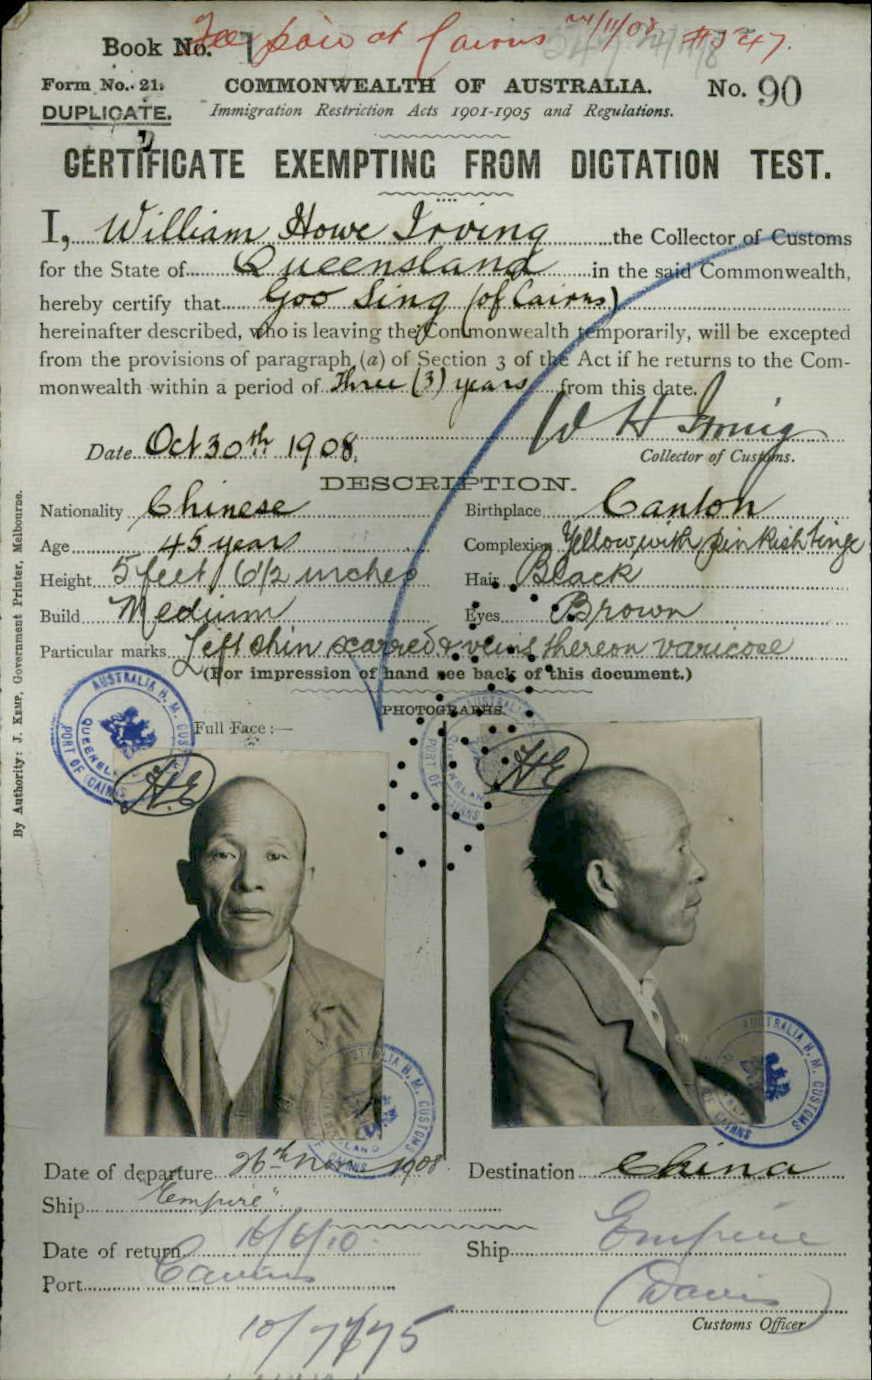 Book No. 7 Fee paid at Cairns 24/11/08
Form No. 21. COMMONWEALTH OF AUSTRALIA. No. 90
DUPLICATE. Immigration Restriction Acts 1901-1905 and Regulations.
CERTIFICATE EXEMPTING FROM DICTATION TEST.
I, William Howe Irving the Collector of Customs
for the State of Queensland in the said Commonwealth,
hereby certify that Goo Sing (of Cairns)
hereinafter described, who is leaving the Commonwealth temporarily, will be excepted
from the provisions of paragraph (a) of Section 3 of the Act if he returns to the Com-
monwealth within a period of Three (3) years from this date.
W H Irving
Date Oct 30th 1908. Collector of Customs.
DESCRIPTION.
Nationality Chinese Birthplace Canton
Age 45 years Complexion Yellow with pinkish tinge
Height 5 feet 6 1/2 inches Hair Black
Build Medium Eyes Brown
Particular marks Left shin scarred & veins thereon varicose
(For impression of hand see back of this document.)
PHOTOGRAPHS.
Full Face :—
AUSTRALIA H. M. CUSTOMS QUEENSLAND PORT OF CAIRNS
H.E
AUSTRALIA QUEENSLAND PORT OF CAIRNS
H.E
AUSTRALIA H. M. CUSTOMS QUEENSLAND CAIRNS
AUSTRALIA H. M. CUSTOMS QUEENSLAND PORT OF CAIRNS
Date of departure 26th Nov 1908. Destination China
Ship "Empire"
Date of return 16/6/10. Ship Empire
Port Cairns
(Davis)
Customs Officer
By Authority: J. KEMP, Government Printer, Melbourne.